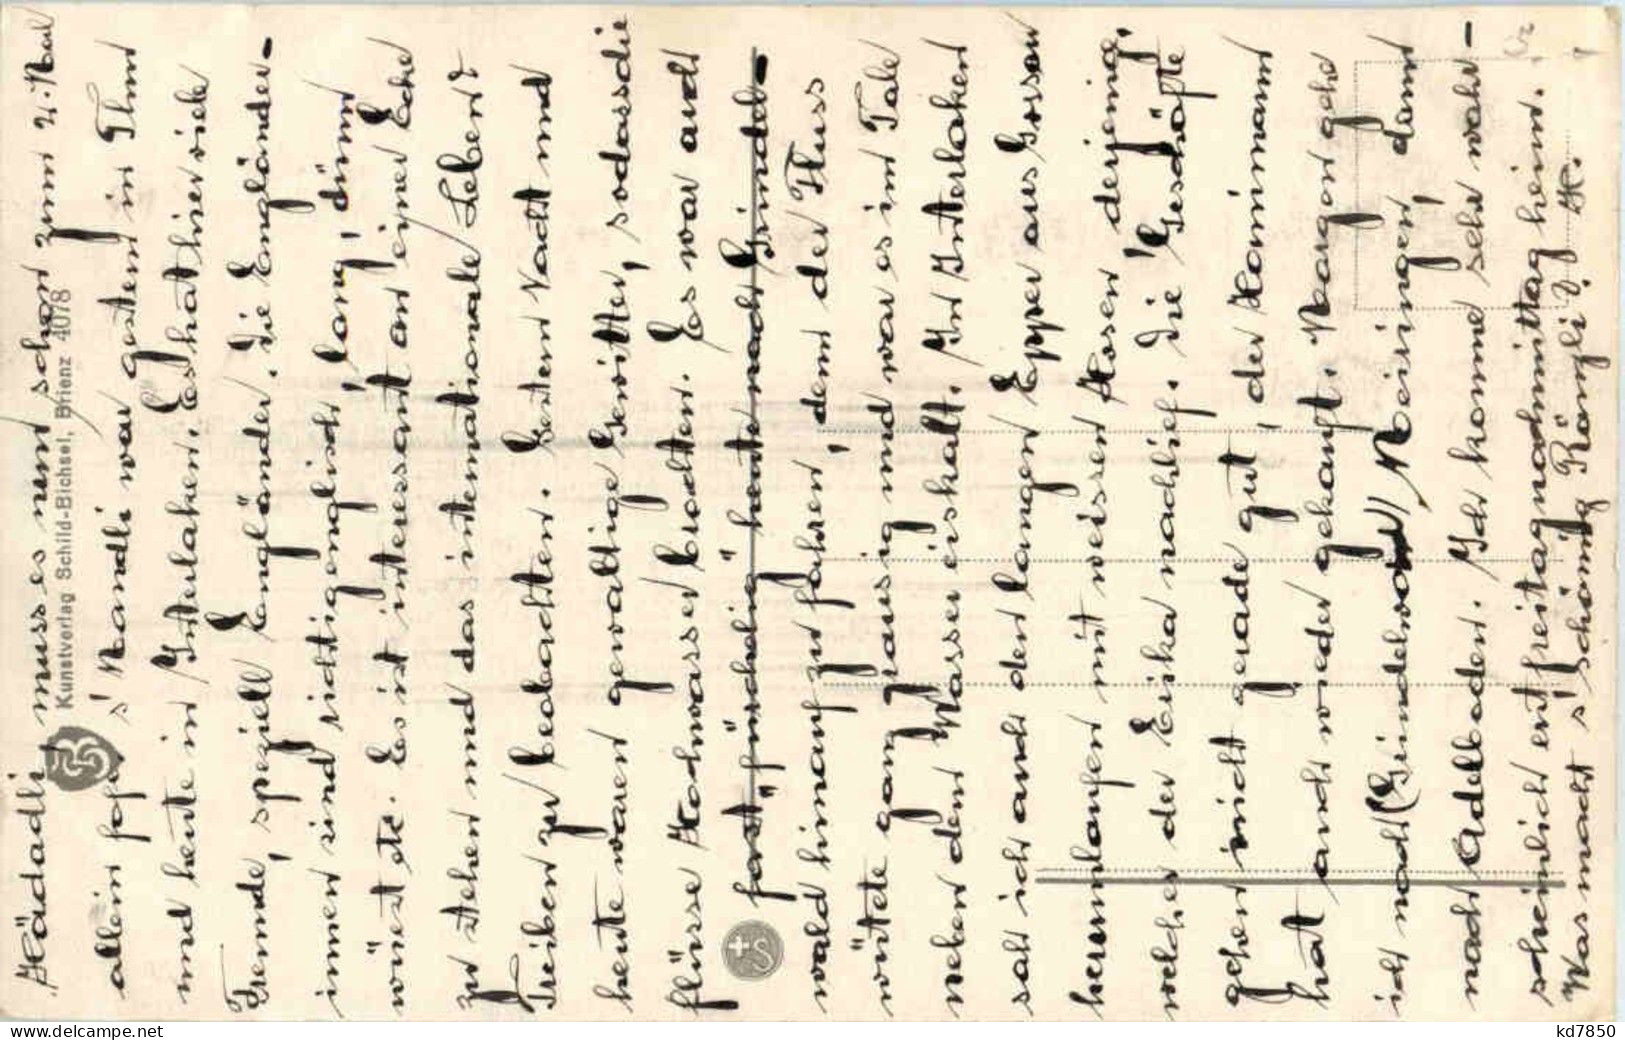 Hädadli muss es nun schon zum 2. Mal
allein
s'Mandli war gestern in Thun
und heute in Interlaken. Es hat hier viele
Fremde, speziell Engländer. Die Engländer-
innen sind richtig englisch, lang, dünn
etc. Es ist interessant an einer Ecke
zu stehen und das internationale Leben &
Treiben zu beobachten. Gestern Nacht und
heute waren gewaltige Gewitter, sodass die
Flüsse Hochwasser brachten. Es war auch
fast „fürchelig“ heute nach Grindel-
wald hinauf zu fahren, denn der Fluss
wütete ganz grausig und war es im Tale
neben dem Wasser eiskalt. In Interlaken
sah ich auch den langen Epper aus Gossau
herumlaufen mit weissen Hosen, derjenige,
welcher der Erika nachlief. Die Geschäfte
gehen nicht gerade gut, der Hanimann
hat auch wieder gekauft. Morgen gehe
ich nach (Grindelwald) Meiringen, dann
nach Adelboden. Ich komme sehr wahr-
scheinlich erst freitagnachmittag heim.
Was macht s'schöänig Ränzli? H.
Kunstverlag Schild-Bichsel, Brienz 4078
www.delcampe.net
kd7850